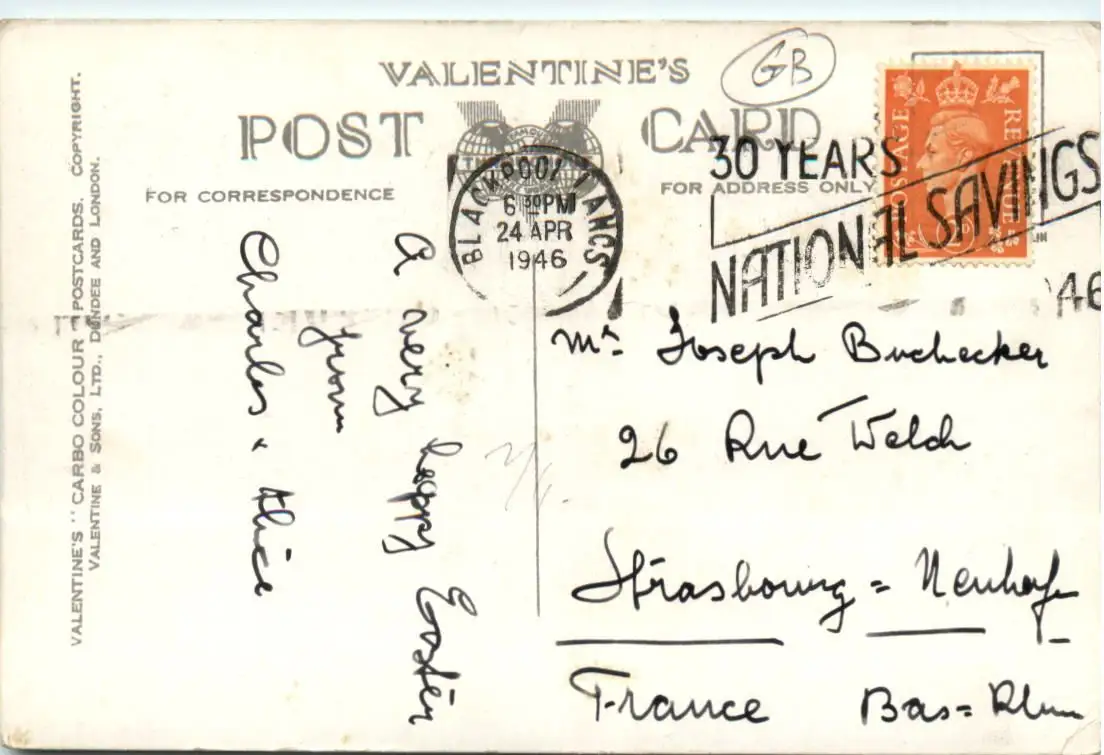 VALENTINE'S
POST CARD
FOR CORRESPONDENCE
FOR ADDRESS ONLY
GB
BLACKPOOL LANCS
6 30 PM
24 APR
1946
30 YEARS
NATIONAL SAVINGS
POSTAGE
REVENUE
VALENTINE'S "CARBO COLOUR" POSTCARDS. COPYRIGHT.
VALENTINE & SONS, LTD., DUNDEE AND LONDON.
A very happy Easter
from
Charles & Alice
Mr. Joseph Buchecker
26 Rue Welch
Strasbourg = Neuhof
France Bas=Rhin